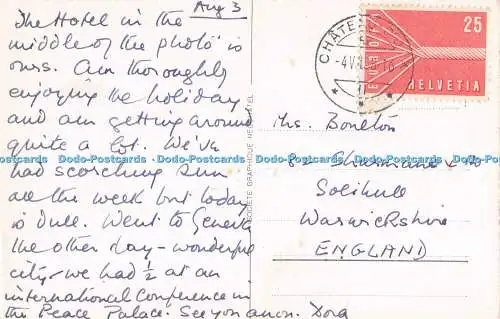 Aug 3
The Hotel in the
middle of the photo is
ours. Am thoroughly
enjoying the holiday
and am getting around
quite a lot. We've
had scorching sun
all the week but today
is dull. Went to Geneva
the other day - wonderful
city - we had ½ at an
international Conference in
the Peace Palace. See you anon. Dora
SOCIETE GRAPHIQUE NEUCHATEL
CHÂTEA
-4.VIII
EUROPA
25
HELVETIA
Boulton
Solihull
Warwickshire
ENGLAND
Dodo-Postcards Dodo-Postcards Dodo-Postcards Dodo-Postcards Dodo-Postcards